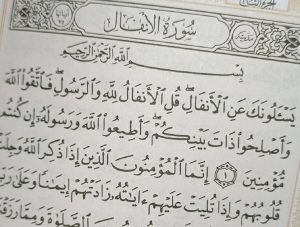 سُورَةُ الأَنفَالِ
بِسْمِ اللَّهِ الرَّحْمَٰنِ الرَّحِيمِ
يَسْـَٔلُونَكَ عَنِ الْأَنفَالِ ۖ قُلِ الْأَنفَالُ لِلَّهِ وَالرَّسُولِ ۖ فَاتَّقُوا اللَّهَ
وَأَصْلِحُوا ذَاتَ بَيْنِكُمْ ۖ وَأَطِيعُوا اللَّهَ وَرَسُولَهُ إِن كُنتُم
مُّؤْمِنِينَ ١ إِنَّمَا الْمُؤْمِنُونَ الَّذِينَ إِذَا ذُكِرَ اللَّهُ وَجِلَتْ
قُلُوبُهُمْ وَإِذَا تُلِيَتْ عَلَيْهِمْ ءَايَٰتُهُ زَادَتْهُمْ إِيمَٰنًا وَعَلَىٰ
الصَّلَوٰةَ وَمِمَّا